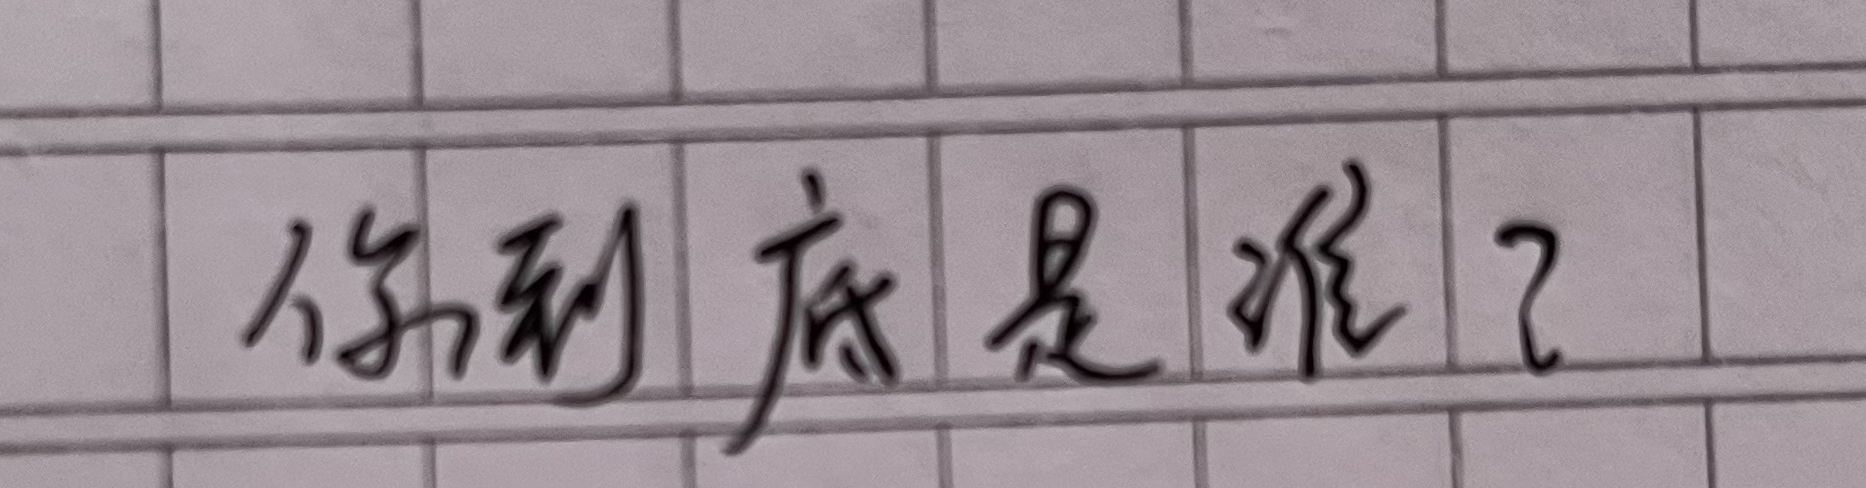 你到底是谁？